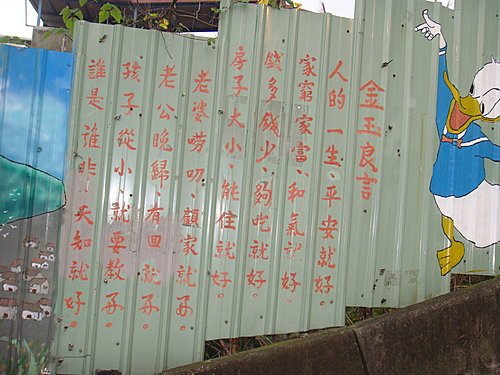 金玉良言
人的一生、平安就好。
家窮家富、和氣就好。
錢多錢少、夠吃就好。
房子大小、能住就好。
老婆嘮叨顧家就好。
老公晚歸有回就好。
孩子從小就要教好。
誰是誰非天知就好。